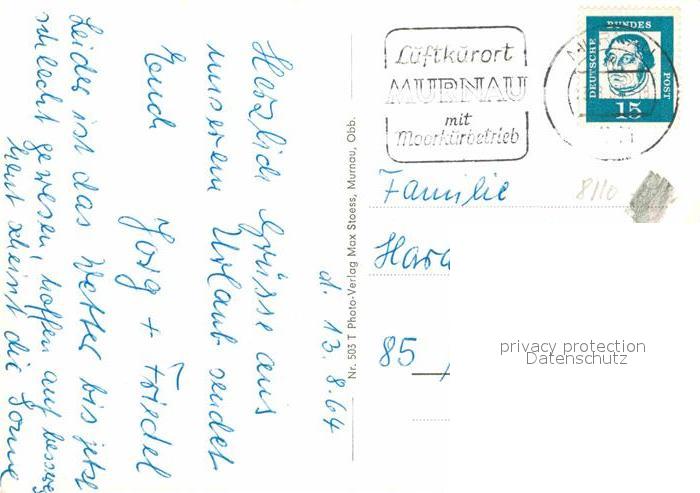 d. 13.8.64
Herzliche Grüsse aus
unserem Urlaub sendet
Euch
Josig + Friedel
Leider ist das Wetter bis jetzt
schlecht gewesen, hoffen auf besseres
heut scheint die Sonne
Nr. 503 T Photo-Verlag Max Stoess, Murnau, Obb.
Luftkurort
MURNAU
mit
Moorkurbetrieb
DEUTSCHE BUNDES POST
15
Familie
8110
Hara
85
privacy protection
Datenschutz